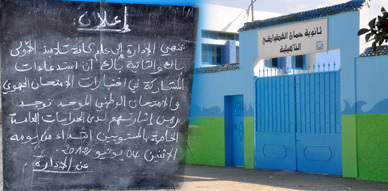 إعلان
تنهي الإدارة إلى علم كافة تلاميذ الأولى
باك والثانية باك أن استدعاءات
المشاركة في اختبارات الامتحان الجهوي
والامتحان الوطني الموحد توجد
رهن إشارتهم لدى الحراسات العامة
الخاصة بالمستويين ابتداء من يومه
الاثنين 04 يونيو 2018.
عن الإدارة
ثانوية حمان الفطواكي
التأهيلية